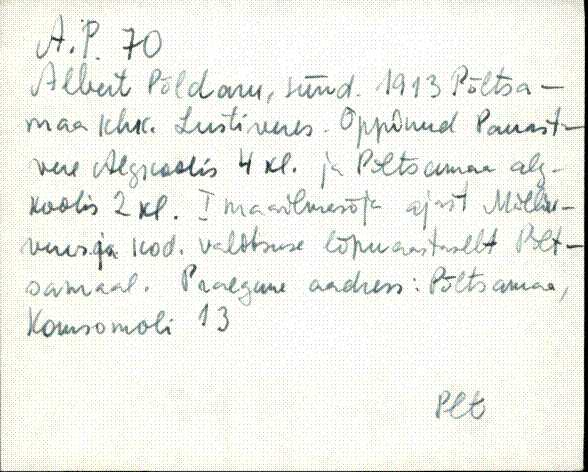 A.P. 70
Albert Põldaru, sünd. 1913 Põltsa-
maa khk. Lustiveres. Õppinud Pauast-
vere Algkoolis 4 kl. ja Põltsamaa alg-
koolis 2 kl. I maailmasõja ajast Mällik-
veres ja kod. valitsuse lõpuaastaselt Põlt-
samaal. Praegune aadress: Põltsamaa,
Komsomoli 13
Plt